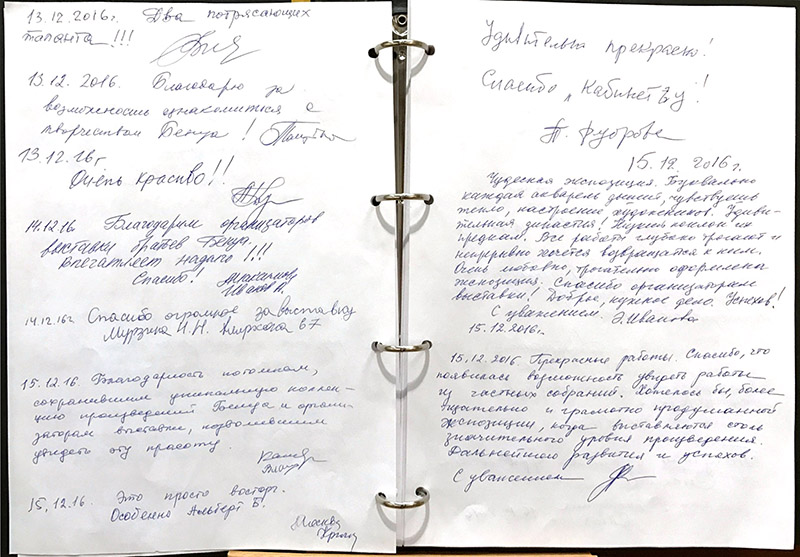 13.12.2016г. Два потрясающих
таланта!!!
13.12.2016. Благодарю за
возможность ознакомиться с
творчеством Бенуа!
13.12.16г
Очень красиво!!
14.12.16 Благодарим организаторов
выставки братьев Бенуа.
Впечатляет надолго!!!
Спасибо!
Иванов А.
14.12.16г Спасибо огромное за выставку
Мурзина И.Н. 67
15.12.16. Благодарность потомкам,
сохранившим уникальную коллек-
цию произведений Бенуа и органи-
заторам выставки, позволившим
увидеть эту красоту.
15.12.16. Это просто восторг.
Особенно Альберт Б!
Москва
Удивительно прекрасно!
Спасибо „Кабинету"!
15.12.2016г.
Чудесная экспозиция. Буквально
каждая акварель дышит, чувствуешь
тепло, настроение художников. Удиви-
тельная династия! Низкий поклон их
предкам. Все работы глубоко трогают и
непрерывно хочется возвращаться к ним.
Очень любовно, трогательно оформлена
экспозиция. Спасибо организаторам
выставки! Доброе, нужное дело. Успехов!
С уважением. Э.Иванова
15.12.2016г.
15.12.2016. Прекрасные работы. Спасибо, что
появилась возможность увидеть работы
из частных собраний. Хотелось бы, более
тщательно и грамотно продуманной
экспозиции, когда выставляются столь
значительного уровня произведения.
Дальнейшего развития и успехов.
С уважением